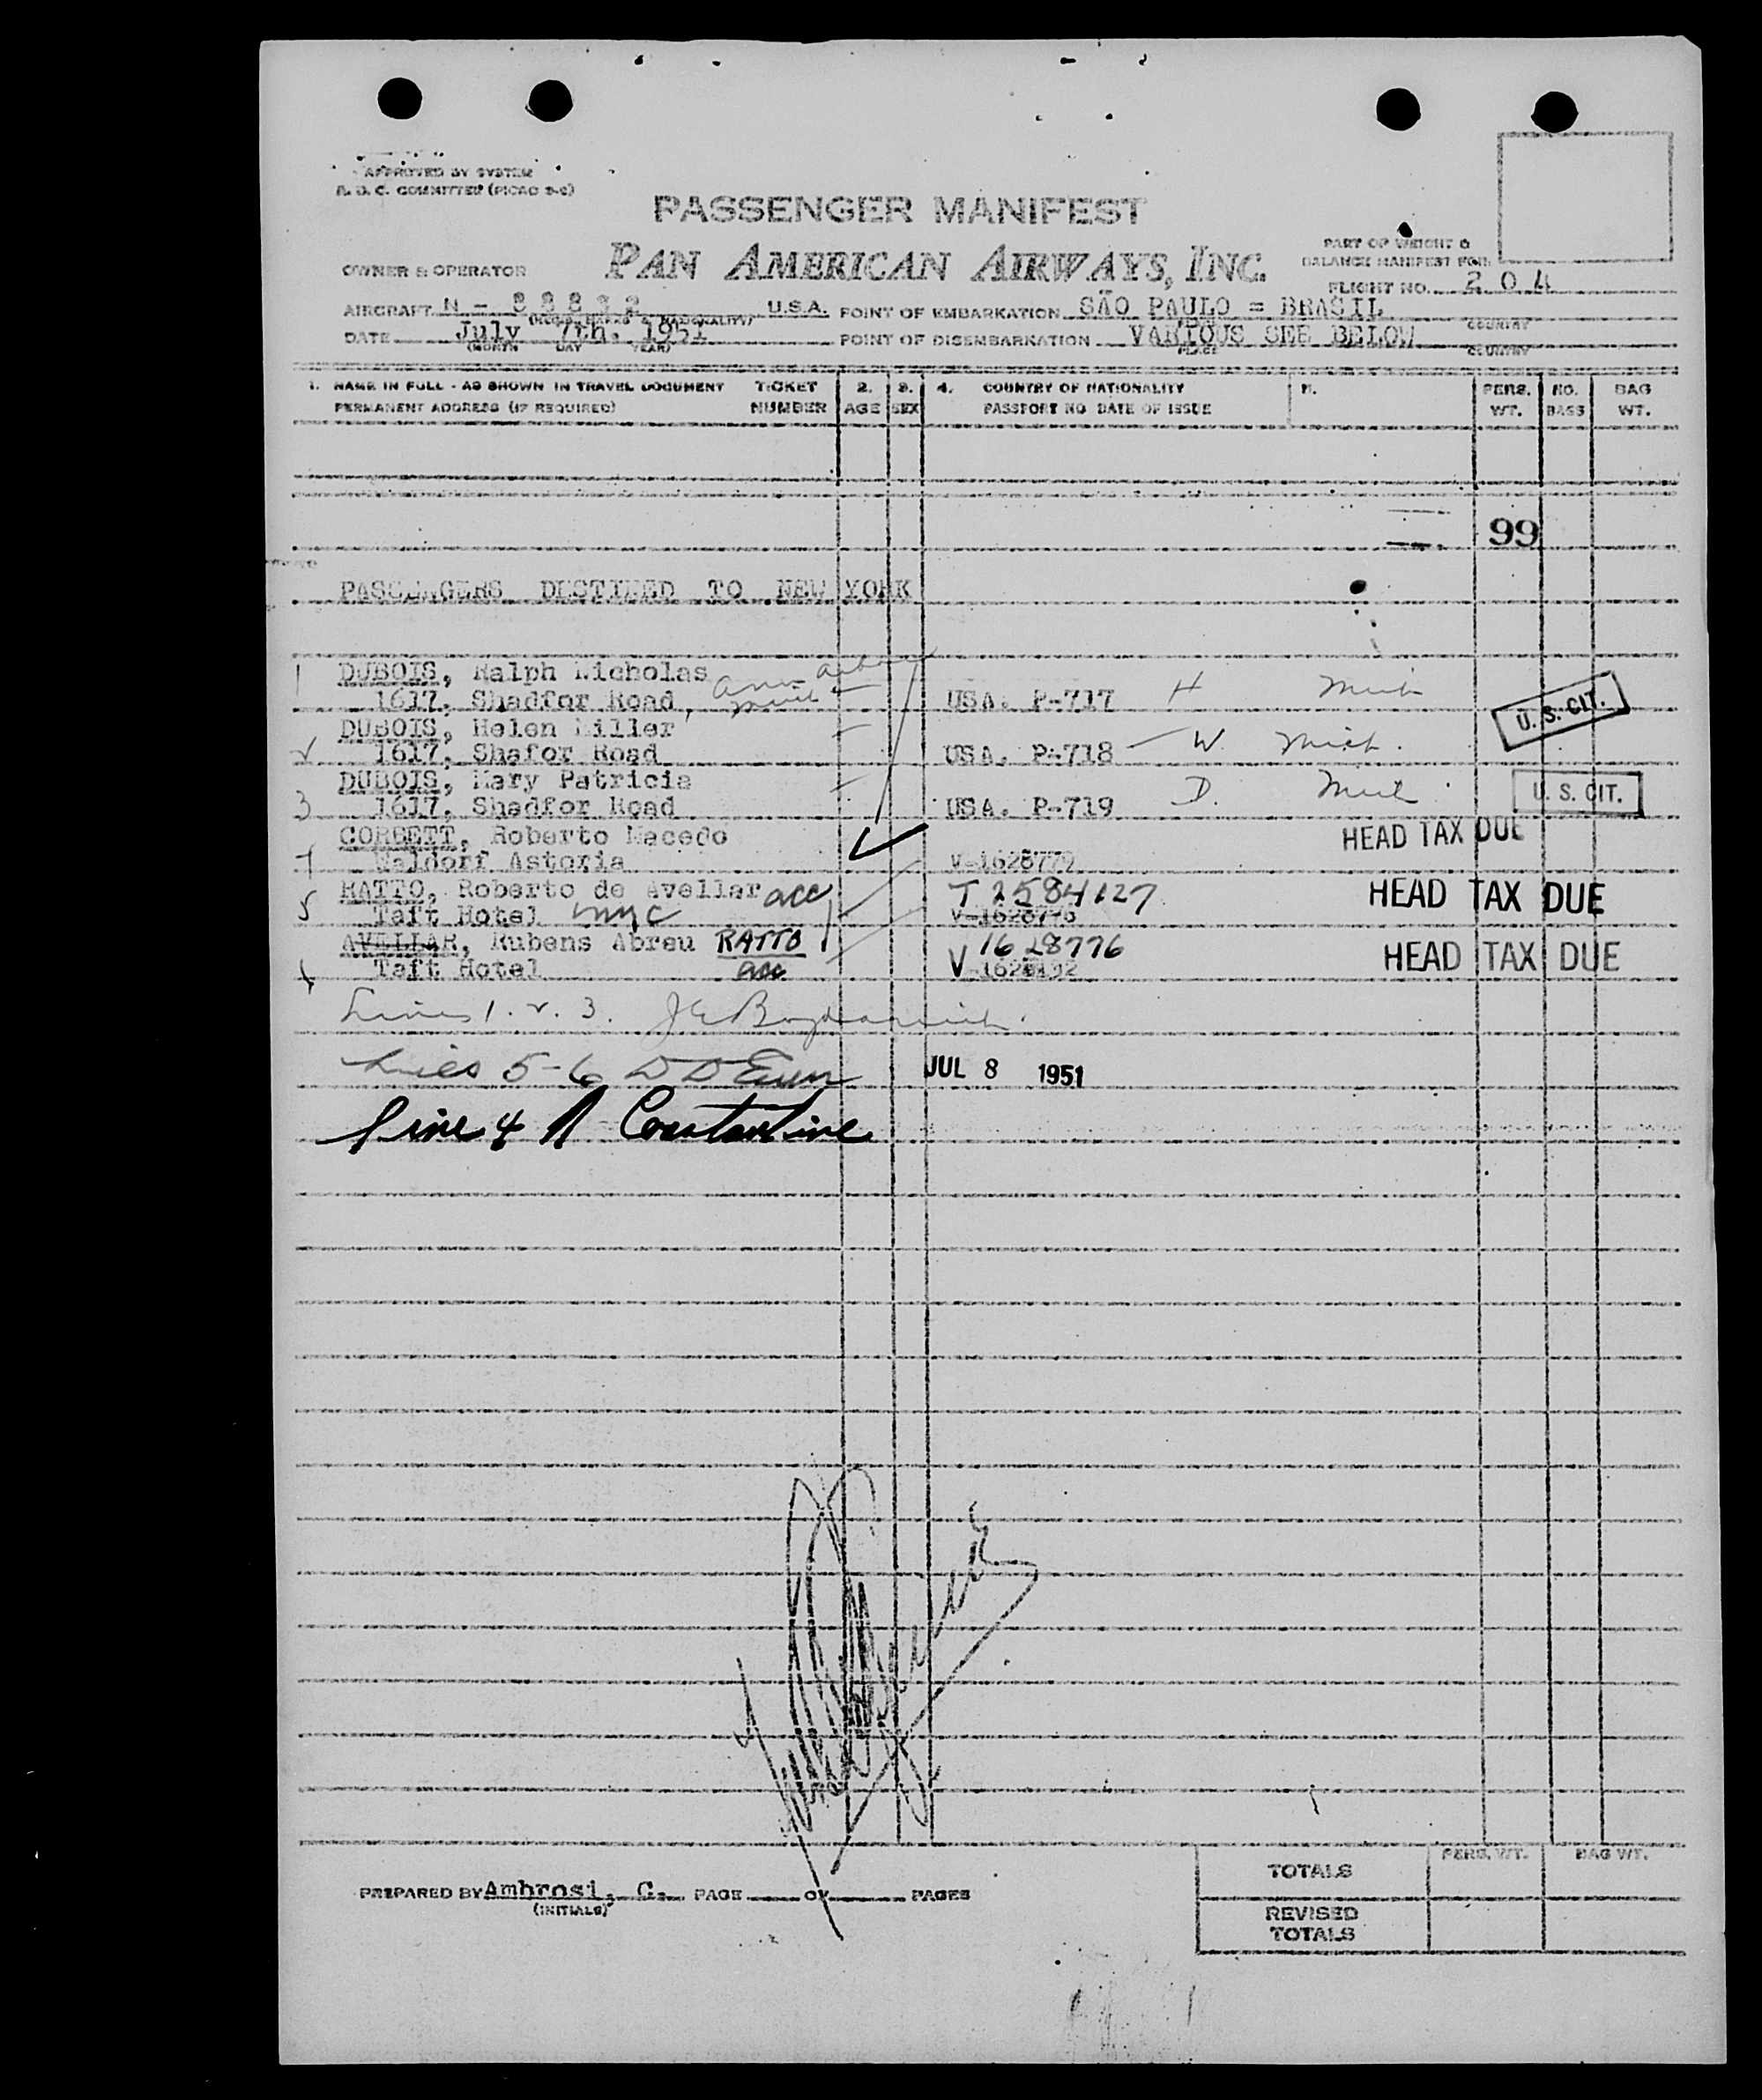 APPROVED BY SYSTEM
COMMITTEE (PICAO
PASSENGER MANIFEST
PAN AMERICAN AIRWAYS, INC.
PART OF WEIGHT &
BALANCE MANIFEST FOR:
OWNER & OPERATOR
FLIGHT NO. 204
AIRCRAFT N - U.S.A. POINT OF EMBARKATION SÃO PAULO = BRASIL
COUNTRY
DATE July 7th. 1951 POINT OF DISEMBARKATION VARIOUS SEE BELOW
(MONTH DAY YEAR) PLACE COUNTRY
1. NAME IN FULL - AS SHOWN IN TRAVEL DOCUMENT TICKET 2. 3. 4. COUNTRY OF NATIONALITY PERS. NO. BAG
PERMANENT ADDRESS (IF REQUIRED) NUMBER AGE SEX PASSPORT NO DATE OF ISSUE WT. BAGS WT.
99
PASSENGERS DESTINED TO NEW YORK
1 DUBOIS, Ralph Nicholas Ann Arbor
1617, Shadfor Road, Mich USA. P-717 H Mich U. S. CIT.
DUBOIS, Helen Miller
2 1617, Shafor Road USA. P-718 W. Mich.
DUBOIS, Mary Patricia
3 1617, Shadfor Road USA. P-719 D. Mich U. S. CIT.
CORBETT, Roberto Macedo HEAD TAX DUE
Waldorf Astoria V-1628779
RATTO, Roberto de Avellar acc T 2584127 HEAD TAX DUE
5 Taft Hotel NYC
AVELLAR, Rubens Abreu RATTO V 1628776 HEAD TAX DUE
Taft Hotel acc
Lines 1. 2. 3.
Lines 5-6 JUL 8 1951
Line 4 A Constantine
TOTALS PERS. WT. BAG WT.
PREPARED BY Ambrosi, C. PAGE OF PAGES
(INITIALS)
REVISED
TOTALS